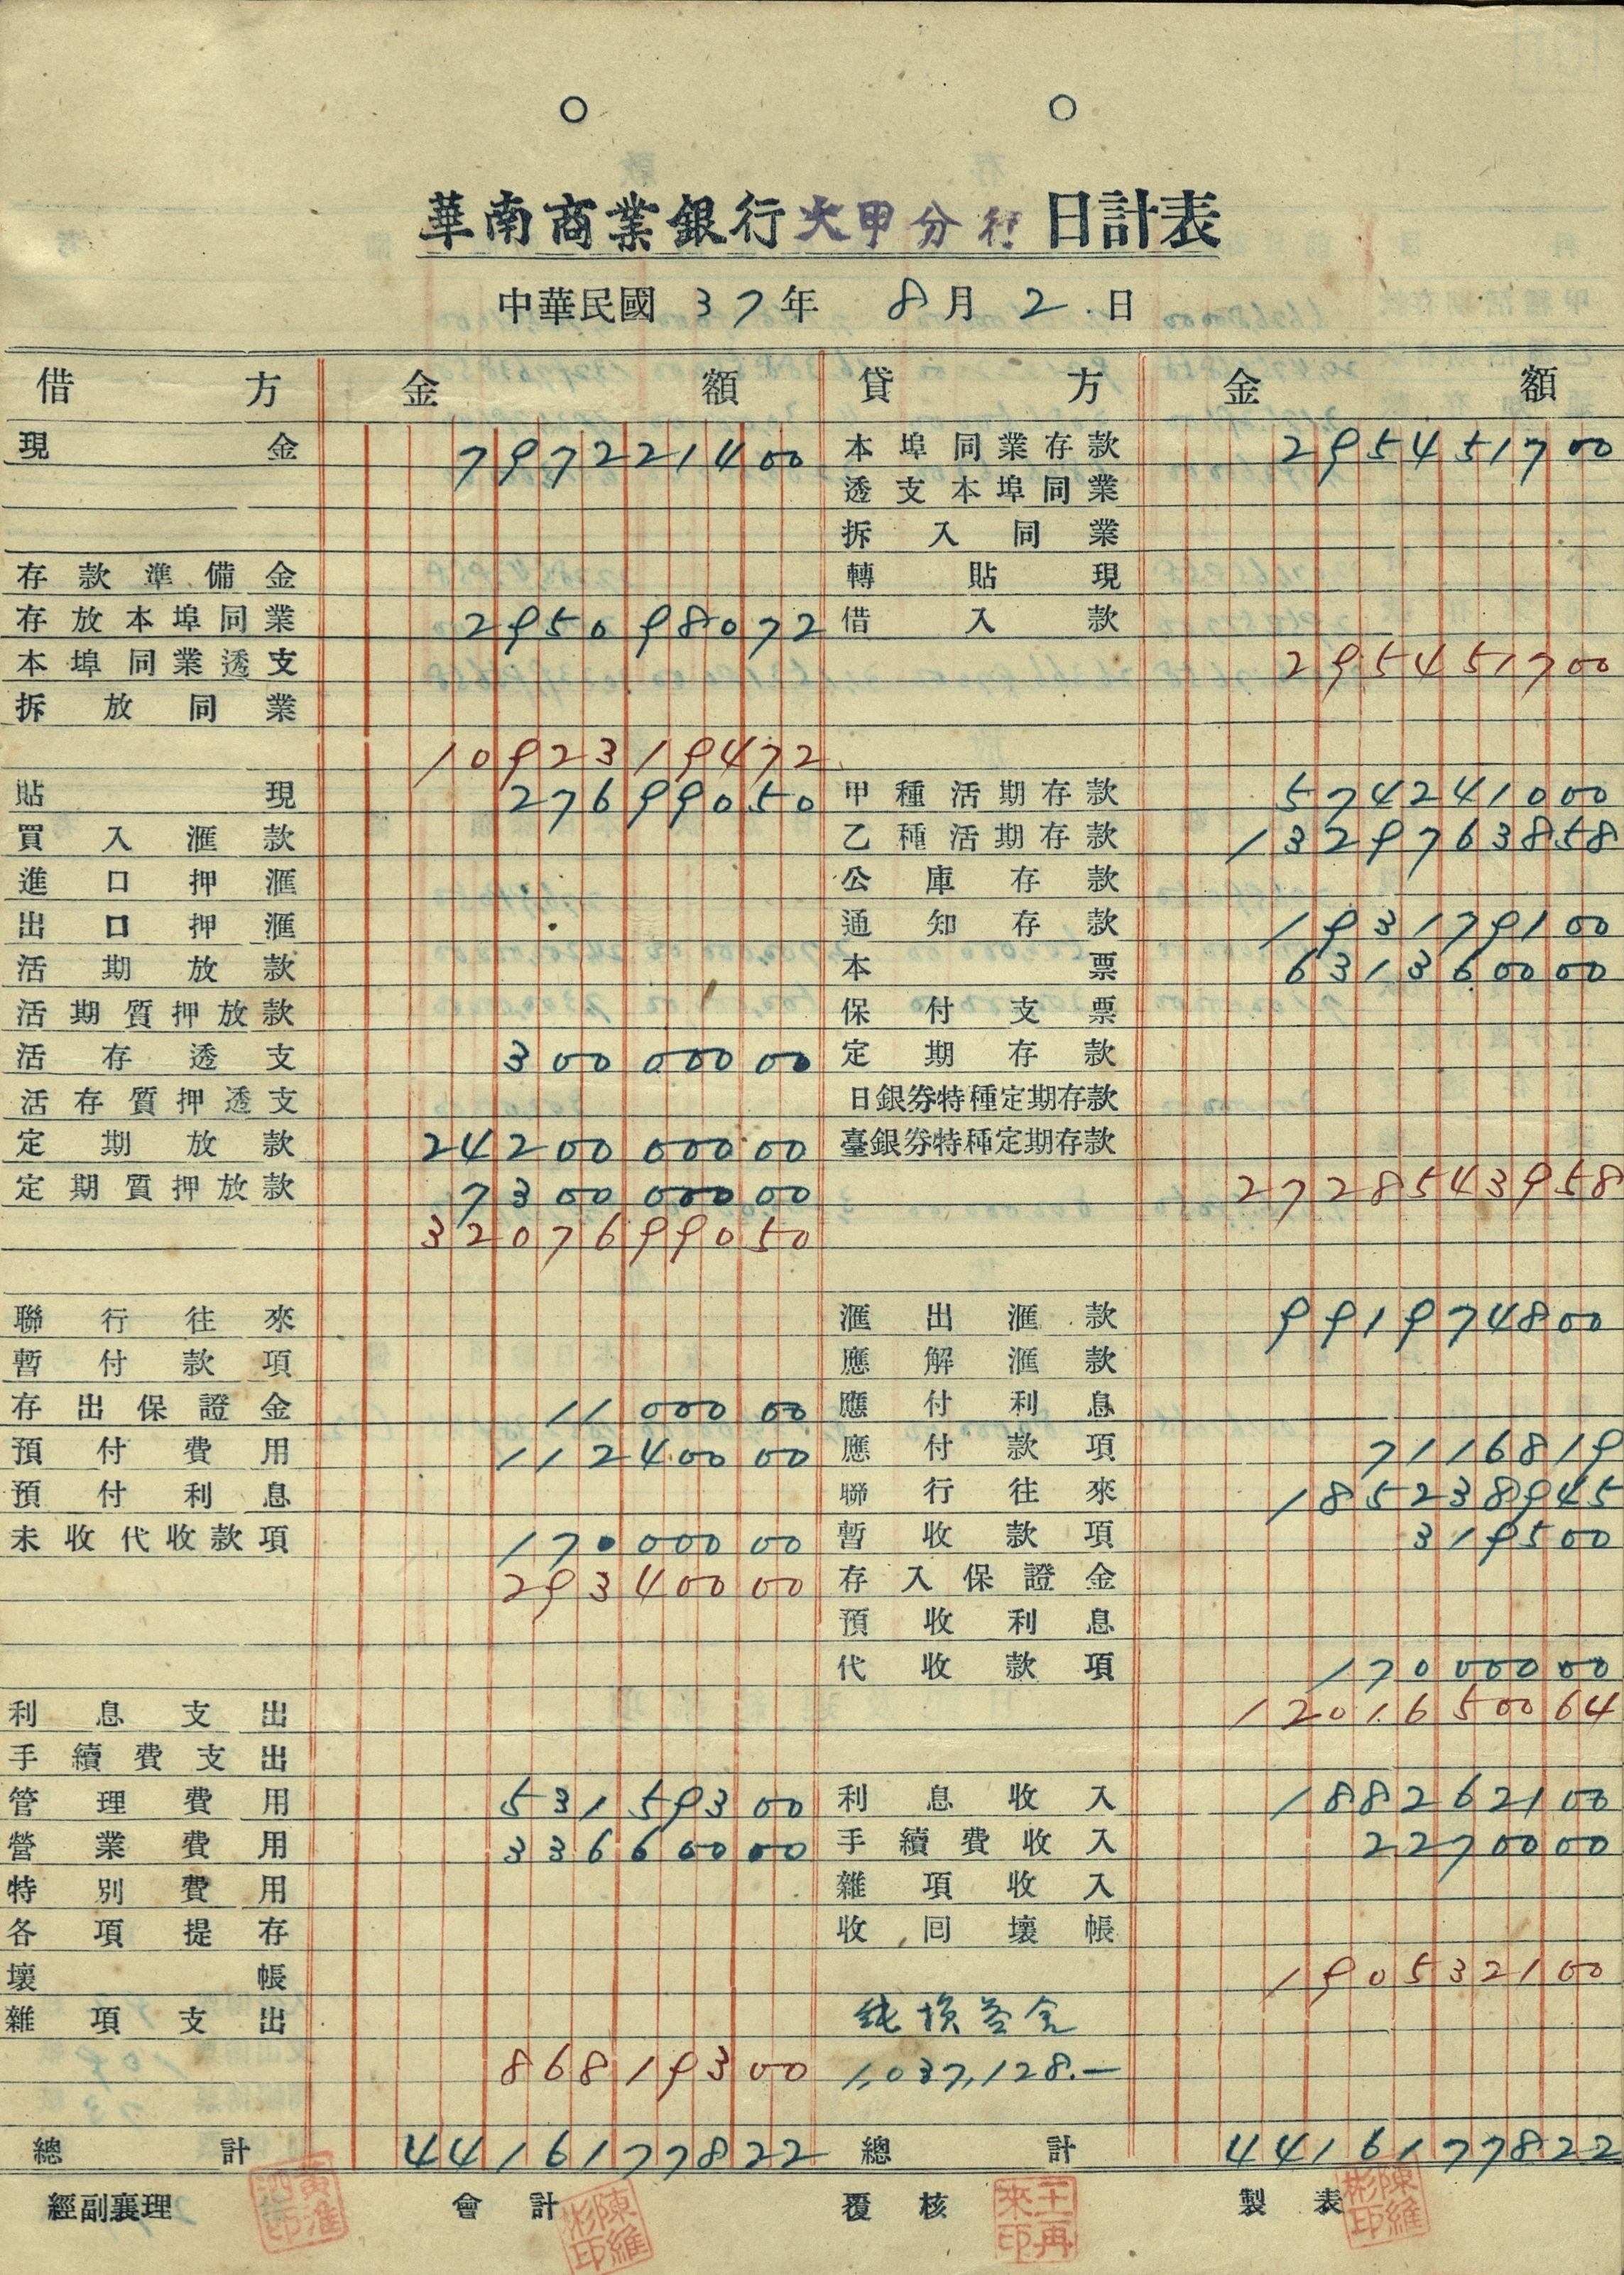 華南商業銀行大甲分行日計表
中華民國 37年 8月 2日
借方 金額 貸方 金額
現金 797221400 本埠同業存款 295451700
透支本埠同業
拆入同業
存款準備金 轉貼現
存放本埠同業 295098072 借入款
本埠同業透支 295451700
拆放同業
1092319472
貼現 27699050 甲種活期存款 574241000
買入滙款 乙種活期存款 1329763858
進口押滙 公庫存款
出口押滙 通知存款 193179100
活期放款 本票 631360000
活期質押放款 保付支票
活存透支 30000000 定期存款
活存質押透支 日銀券特種定期存款
定期放款 2420000000 臺銀券特種定期存款
定期質押放款 730000000 2728543958
3207699050
聯行往來 滙出滙款 991974800
暫付款項 應解滙款
存出保證金 1100000 應付利息
預付費用 11240000 應付款項 7116819
預付利息 聯行往來 185238945
未收代收款項 17000000 暫收款項 319500
29340000 存入保證金
預收利息
代收款項 17000000
利息支出 1201650064
手續費支出
管理費用 53159300 利息收入 188262100
營業費用 33660000 手續費收入 2270000
特別費用 雜項收入
各項提存 收回壞帳
壞帳 190532100
雜項支出 純損益金
86819300 1,037,128.—
總計 4416177822 總計 4416177822
經副襄理 會計 覆核 製表
陳維彬印
王再來印
陳維彬印